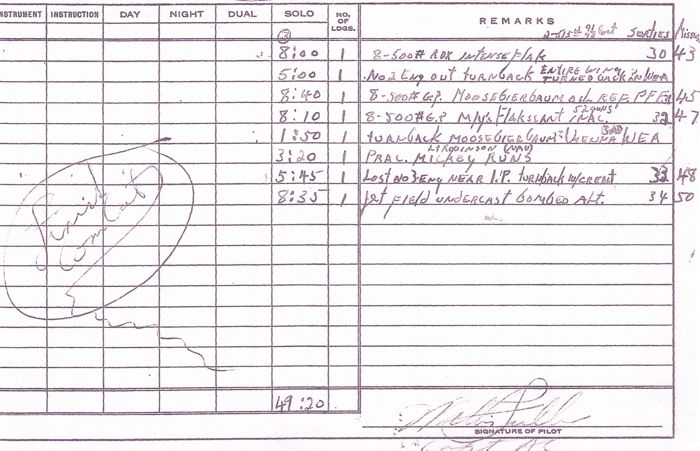 INSTRUMENT INSTRUCTION DAY NIGHT DUAL SOLO NO. OF LDGS. REMARKS
SORTIES
8:00 1 8-500# RDX INTENSE FLAK 30 43
5:00 1 NO 2 ENG OUT TURNBACK ENTIRE WING TURNED BACK WEA
8:40 1 8-500# G.P. MOOSEBIERBAUM OIL REF. PFF 45
8:10 1 8-500# G.P. M/YS FLAK SCANT INAC. 32 47
1:50 1 TURNBACK MOOSEBIERBAUM VIENNA BAD WEA
LT ROBINSON (NAV)
3:20 1 PRAC. MICKEY RUNS
5:45 1 LOST NO 3 ENG NEAR I.P. TURNBACK W/CREDIT 33 48
8:35 1 JET FIELD UNDERCAST BOMBED ALT. 34 50
Finish
Combat
49:20
SIGNATURE OF PILOT